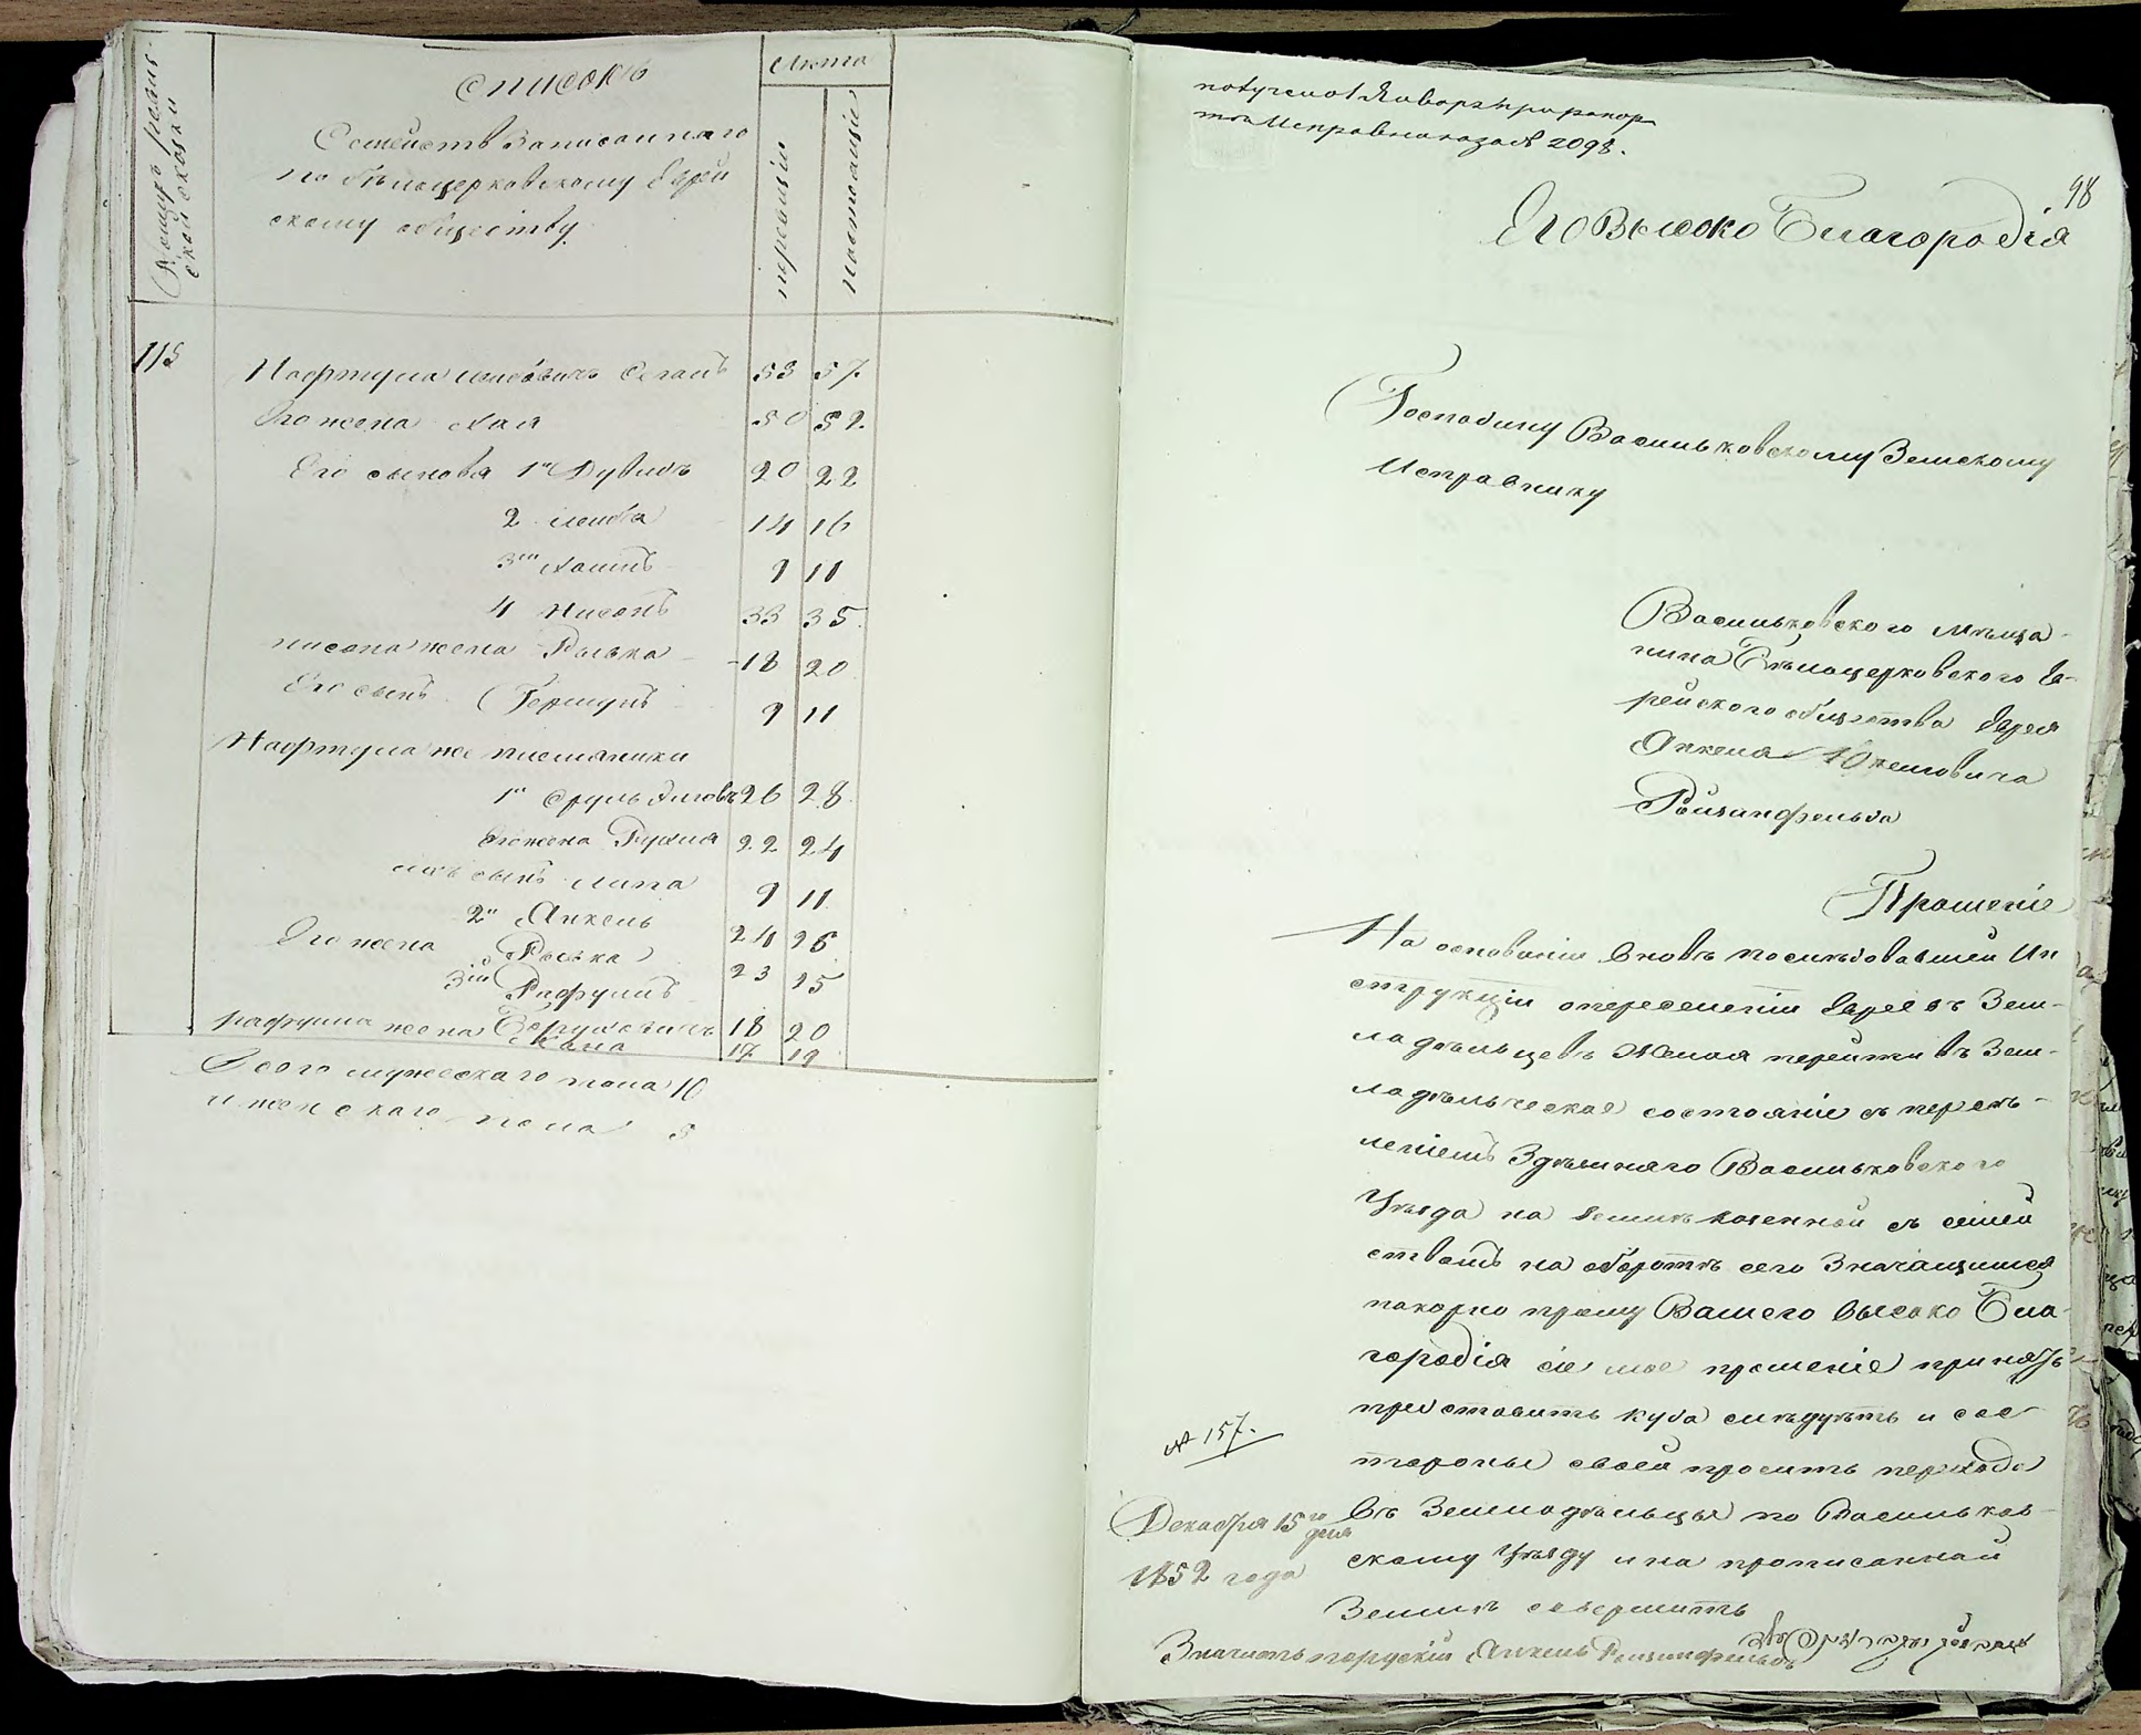 Номеръ ревиз-
ской сказки
Списокъ
Семействъ Записаннаго
по бѣлоцерковскому Еврей
скому обществу
Лѣта
по ревизіи
по настоящіе
115 Нафтула Лейбовичъ Сеганъ 53 57.
Его жена Хая 50 52.
Его сыновя 1й Дувидъ 20 22
2 Лейба 14 16
3й Хаимъ 9 11
4 Нисонъ 33 35.
нисона жена Роська 18 20
Его сынъ Гершунъ 9 11
Нафтула же племяники
1й Сруль 26 28
Его жена Рухля 22 24
ихъ сынъ Липа 9 11.
2й Анкель 24 26
Его жена Роська 23 25
3й Рафуилъ 18 20
рафуила жена Хана 17 19
Всего мужескаго пола 10
и женскаго пола 5
получено 1 Января при рапор
тѣ Исправника за № 2098.
98
Его Высоко Благородія
Господину Васильковскому Земскому
Исправнику
Васильковского мѣща-
нина Бѣлоцерковского Ев-
рейского общества Еврея
Анкеля
Ройзинфельда
Прошеніе
На основаніи вновь послѣдовавшей Ин
струкціи о переселеніи Евреевъ Зем-
ладѣльцевъ Желая перейти въ Зем-
ладѣльческое состояніе съ пересѣ-
леніемъ Здѣшняго Васильковского
Уѣзда на землѣ казенной съ семей
ствомъ на оборотѣ сего Значащимся
покорно прошу Вашего высоко Бла-
городія сіе мое прошеніе принять
представить куда слѣдуетъ и сос
тороны своей просить перехода
№ 157.
въ Земладѣльцы по Васильков-
Декабря 15го дня
скому Уѣзду и на прописанной
1852 года
Землѣ совершить
Значитъ порускіи Анкель Ройзинфельдъ